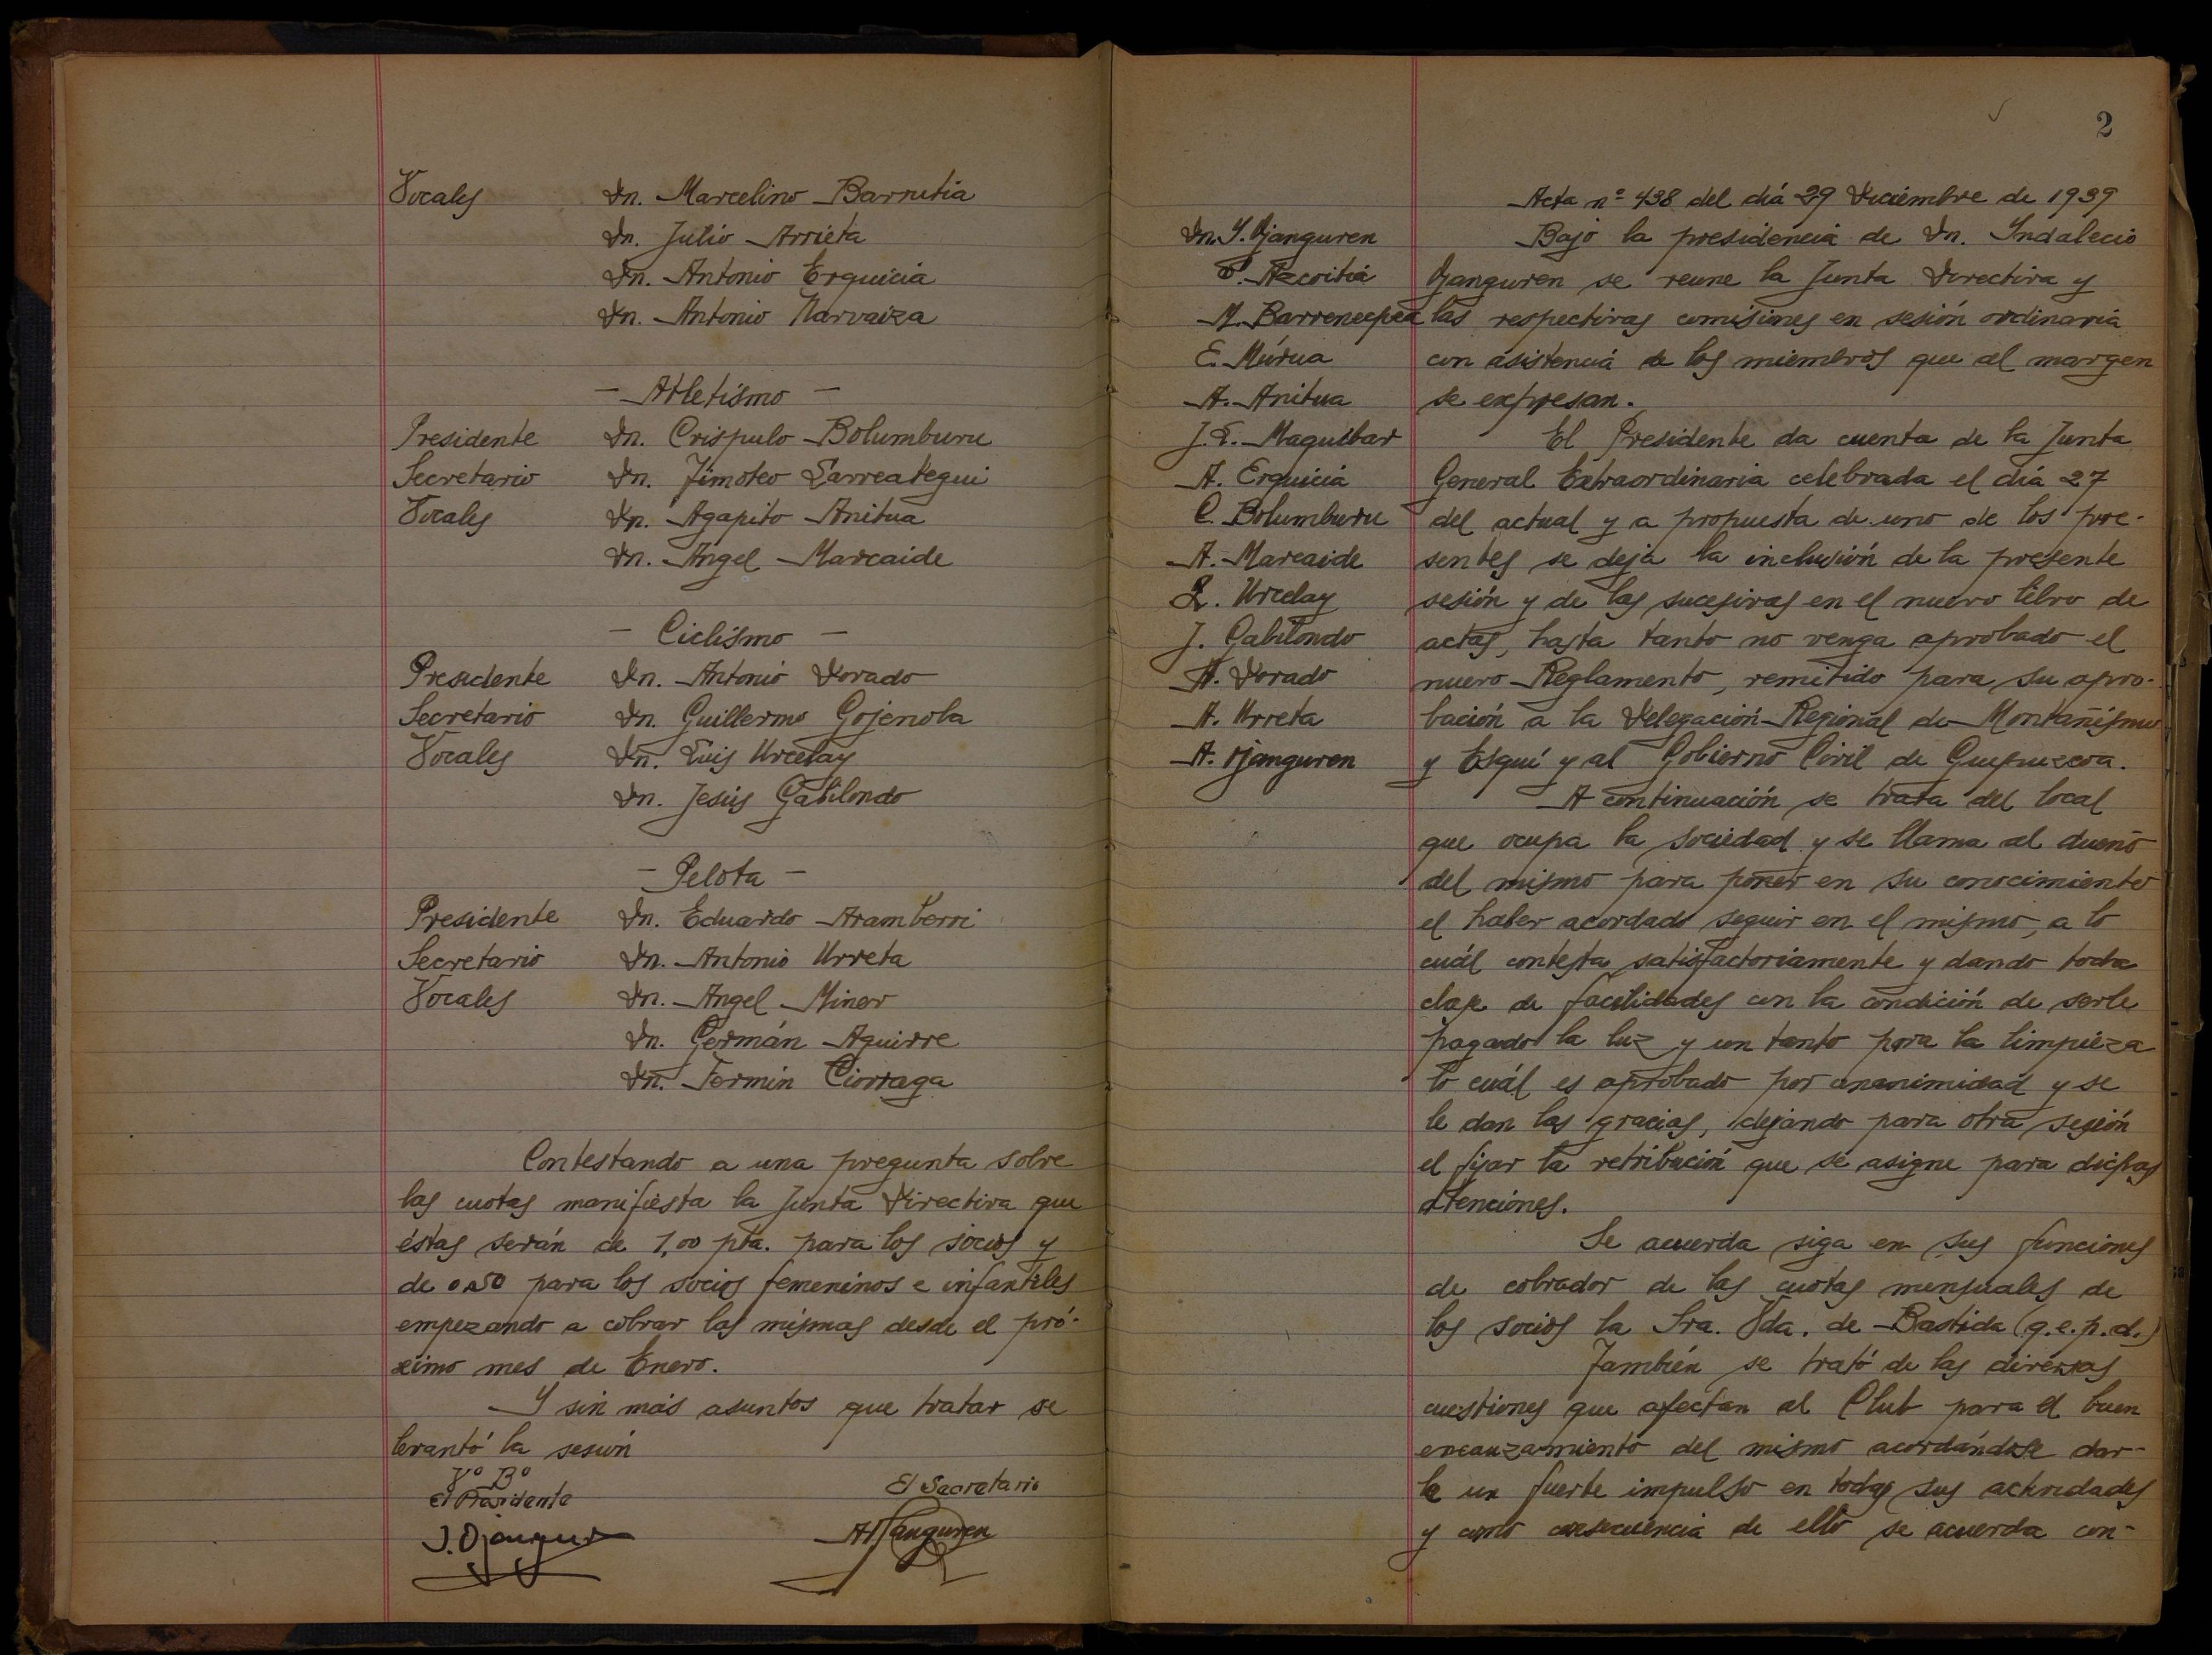 Vocales Dn. Marcelino Barrutia
Dn. Julio Arrieta
Dn. Antonio Erquicia
Dn. Antonio Narvaiza
- Atletismo -
Presidente Dn. Crispulo Bolumburu
Secretario Dn. Timoteo Larreategui
Vocales Dn. Agapito Anitua
Dn. Angel Marcaide
- Ciclismo -
Presidente Dn. Antonio Dorado
Secretario Dn. Guillermo Gojenola
Vocales Dn. Luis Urcelay
Dn. Jesús Gabilondo
- Pelota -
Presidente Dn. Eduardo Aramberri
Secretario Dn. Antonio Urreta
Vocales Dn. Angel Miner
Dn. Germán Aguirre
Dn. Fermin Ciorraga
Contestando a una pregunta sobre
las cuotas manifiesta la Junta Directiva que
éstas serán de 1,00 pta. para los socios y
de 0,50 para los socios femeninos e infantiles
empezando a cobrar las mismas desde el pró-
ximo mes de Enero.
Y sin más asuntos que tratar se
levantó la sesión
Vº Bº
El Presidente
El Secretario
J. Ojanguren
A Ojanguren
2
Acta nº 438 del día 29 Diciembre de 1939
Dn. Y. Ojanguren
Azcoitia
M. Barrenechea
E. Múrua
A. Anitua
J. L. Maguibar
A. Erquicia
C. Bolumburu
A. Marcaide
L. Urcelay
J. Gabilondo
A. Dorado
A. Urreta
A. Ojanguren
Bajo la presidencia de Dn. Yndalecio
Ojanguren se reune la Junta Directiva y
las respectivas comisines en sesión ordinaria
con asistencia de los miembros que al margen
se expresan.
El Presidente da cuenta de la Junta
General Extraordinaria celebrada el día 27
del actual y a propuesta de uno de los pre-
sentes se deja la inclusión de la presente
sesión y de las sucesivas en el nuevo libro de
actas, hasta tanto no venga aprobado el
nuevo Reglamento, remitido para su apro-
bación a la Delegación Regional de Montañismo
y Esquí y al Gobierno Civil de Guipuzcoa.
A continuación se trata del local
que ocupa la sociedad y se llama al dueño
del mismo para poner en su conocimiento
el haber acordado seguir en el mismo, a lo
cuál contesta satisfactoriamente y dando toda
clase de facilidades con la condición de serle
pagado la luz y un tanto para la limpieza
lo cuál es aprobado por unanimidad y se
le dan las gracias, dejando para otra sesión
el fijar la retribución que se asigne para dichas
atenciones.
Se acuerda siga en sus funciones
de cobrador de las cuotas mensuales de
los socios la Sra. Vda. de Bastida (q.e.p.d.)
También se trató de las diversas
cuestiones que afectan al Club para el buen
encauzamiento del mismo acordándose dar-
le un fuerte impulso en todas sus actividades
y como consecuencia de ello se acuerda con-